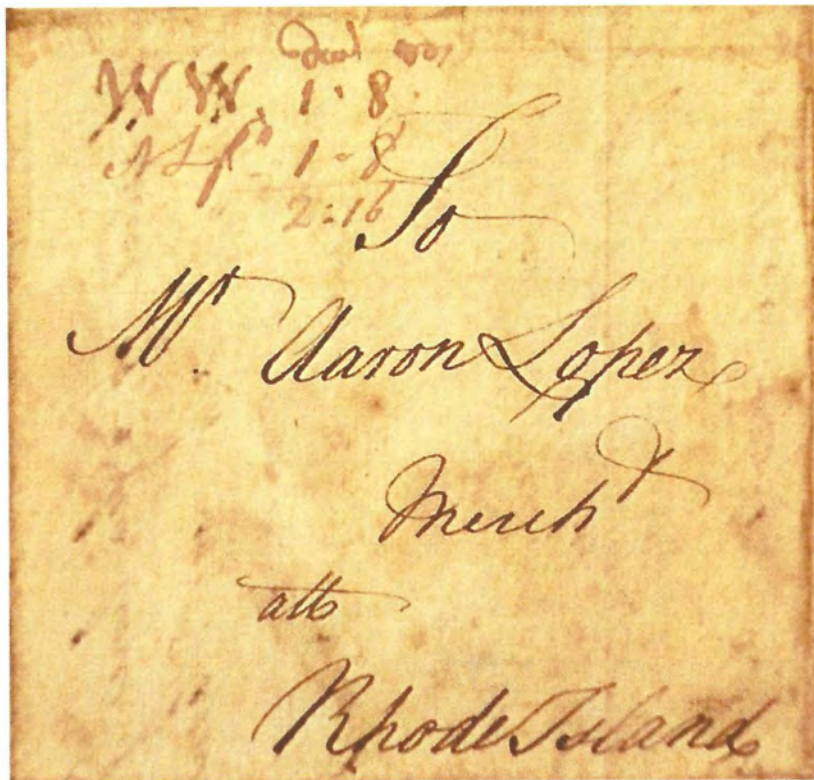 dwt
W W. 1 : 8
1 - 8
2 : 16
To
Mr. Aaron Lopez
Mercht
att
Rhode Island